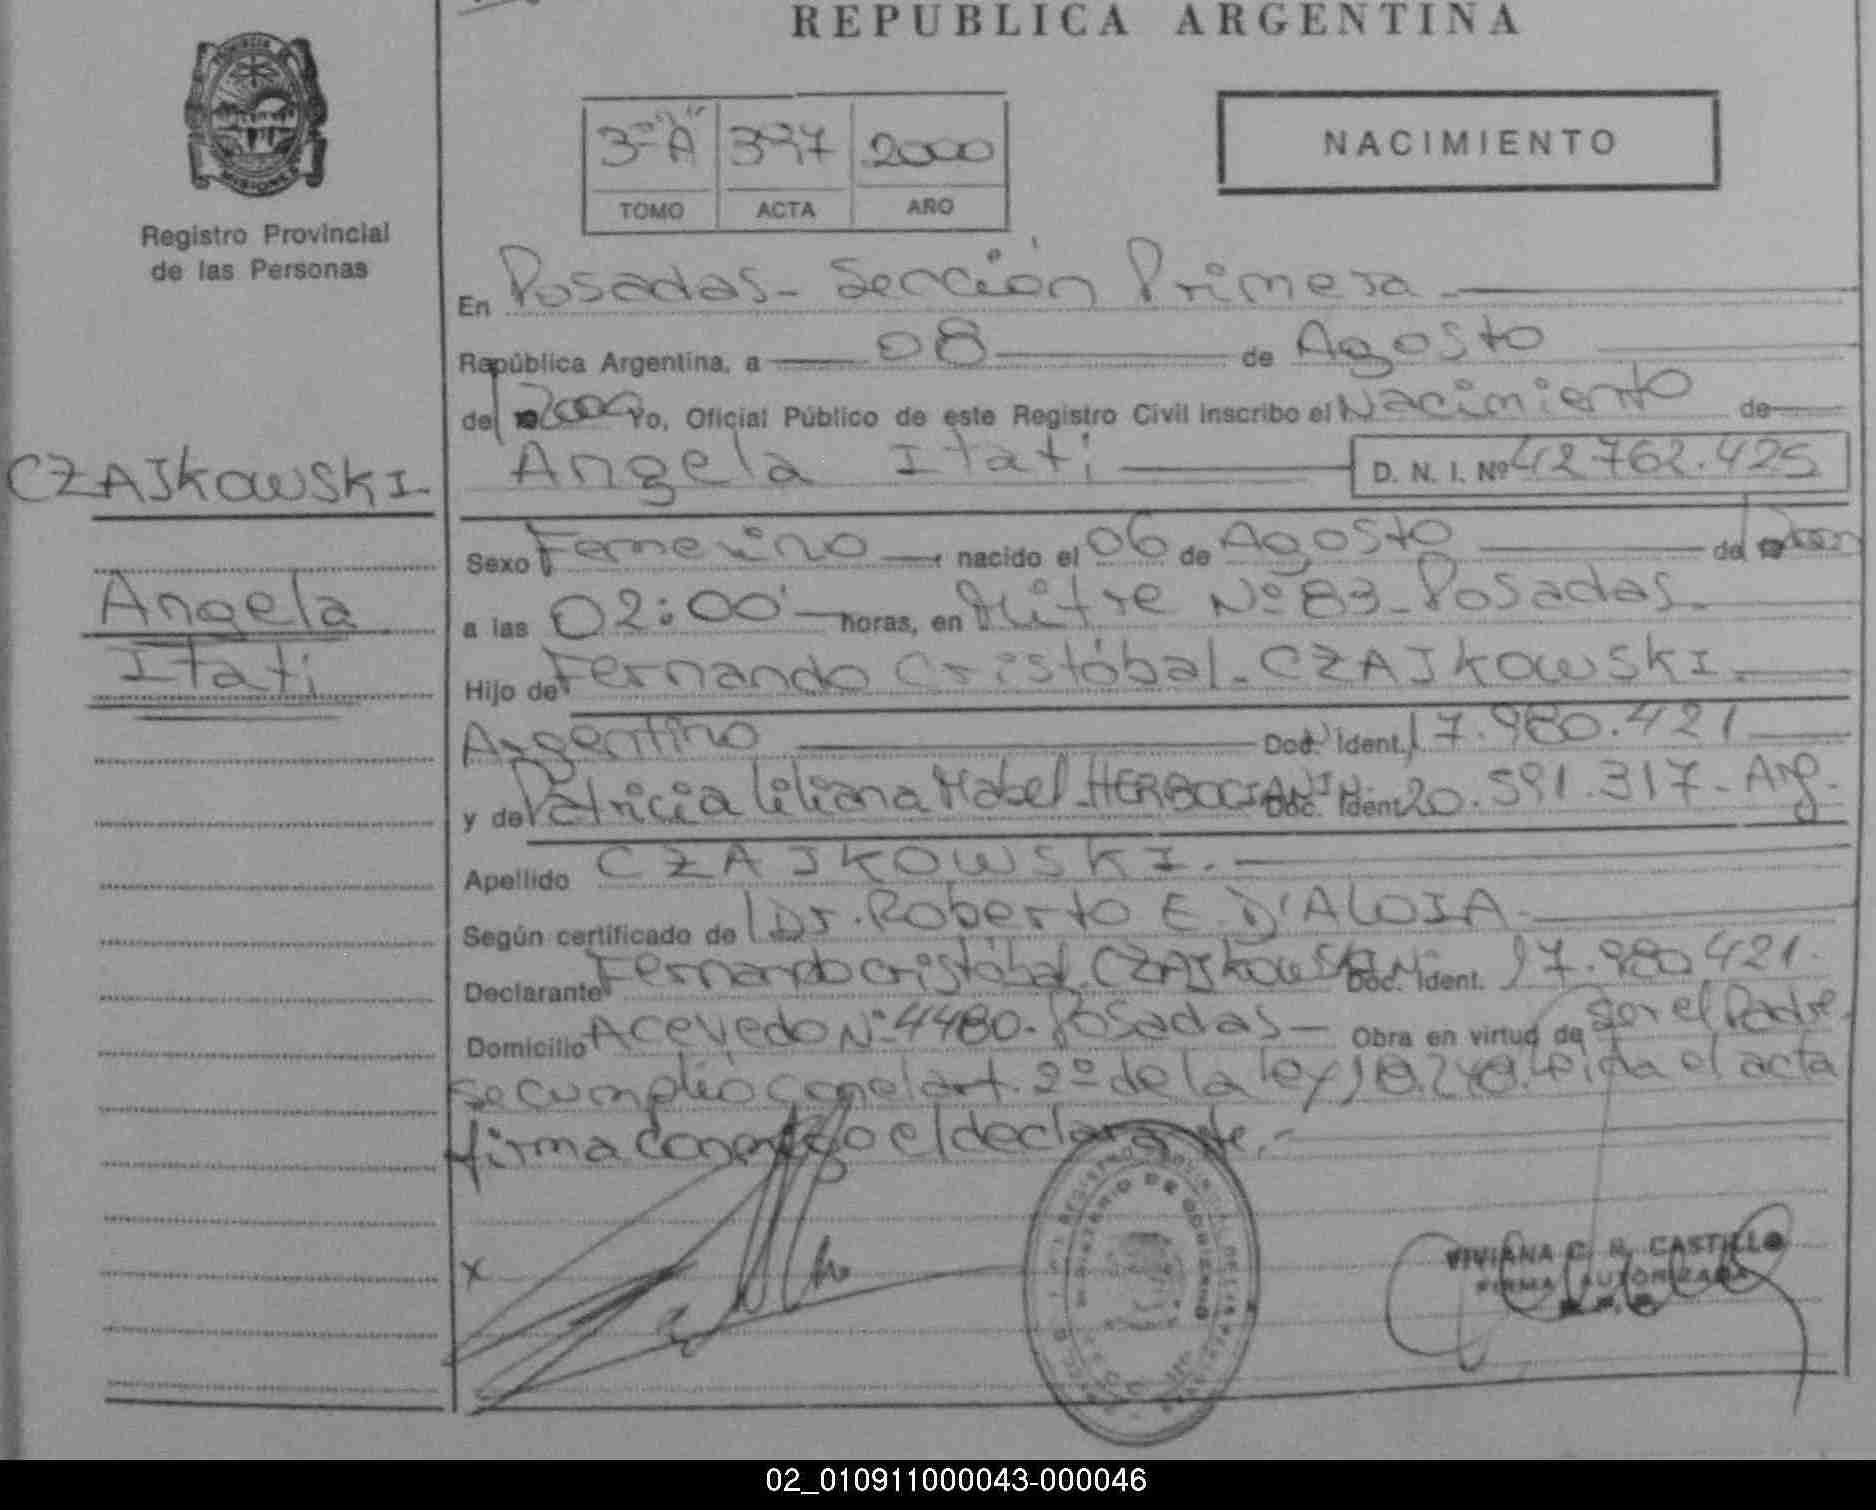 REPUBLICA ARGENTINA
NACIMIENTO
3º "A" 2000
TOMO ACTA AÑO
MISIONES
Registro Provincial
de las Personas
En Posadas - Sección Primera -
República Argentina, a 08 de Agosto
de 2000 Yo, Oficial Público de este Registro Civil inscribo el Nacimiento de
CZAJKOWSKI
Angela Itati D. N. I. Nº 42762.425
Sexo Femenino nacido el 06 de Agosto de 2000
Angela
a las 02:00 horas, en Mitre Nº 83 - Posadas -
Itati
Hijo de Fernando Cristóbal - CZAJKOWSKI -
Argentino Doc. Ident. 17.980.421
y de Patricia Liliana Mabel - Doc. Ident 20.591.317 - Arg.
Apellido CZAJKOWSKI.
Según certificado de Dr. Roberto E. D'ALOIA -
Declarante Fernando Cristóbal CZAJKOWSKI Doc. Ident. 17.980.421.
Domicilio Acevedo Nº 4480 - Posadas - Obra en virtud de ser el Padre.
se cumplió con el art. 2º de la ley 18.248. leída el acta
firma conmigo el declarante. -
x
MINISTERIO DE GOBIERNO
VIVIANA C. R. CASTILLO
FIRMA AUTORIZADA
02_010911000043-000046